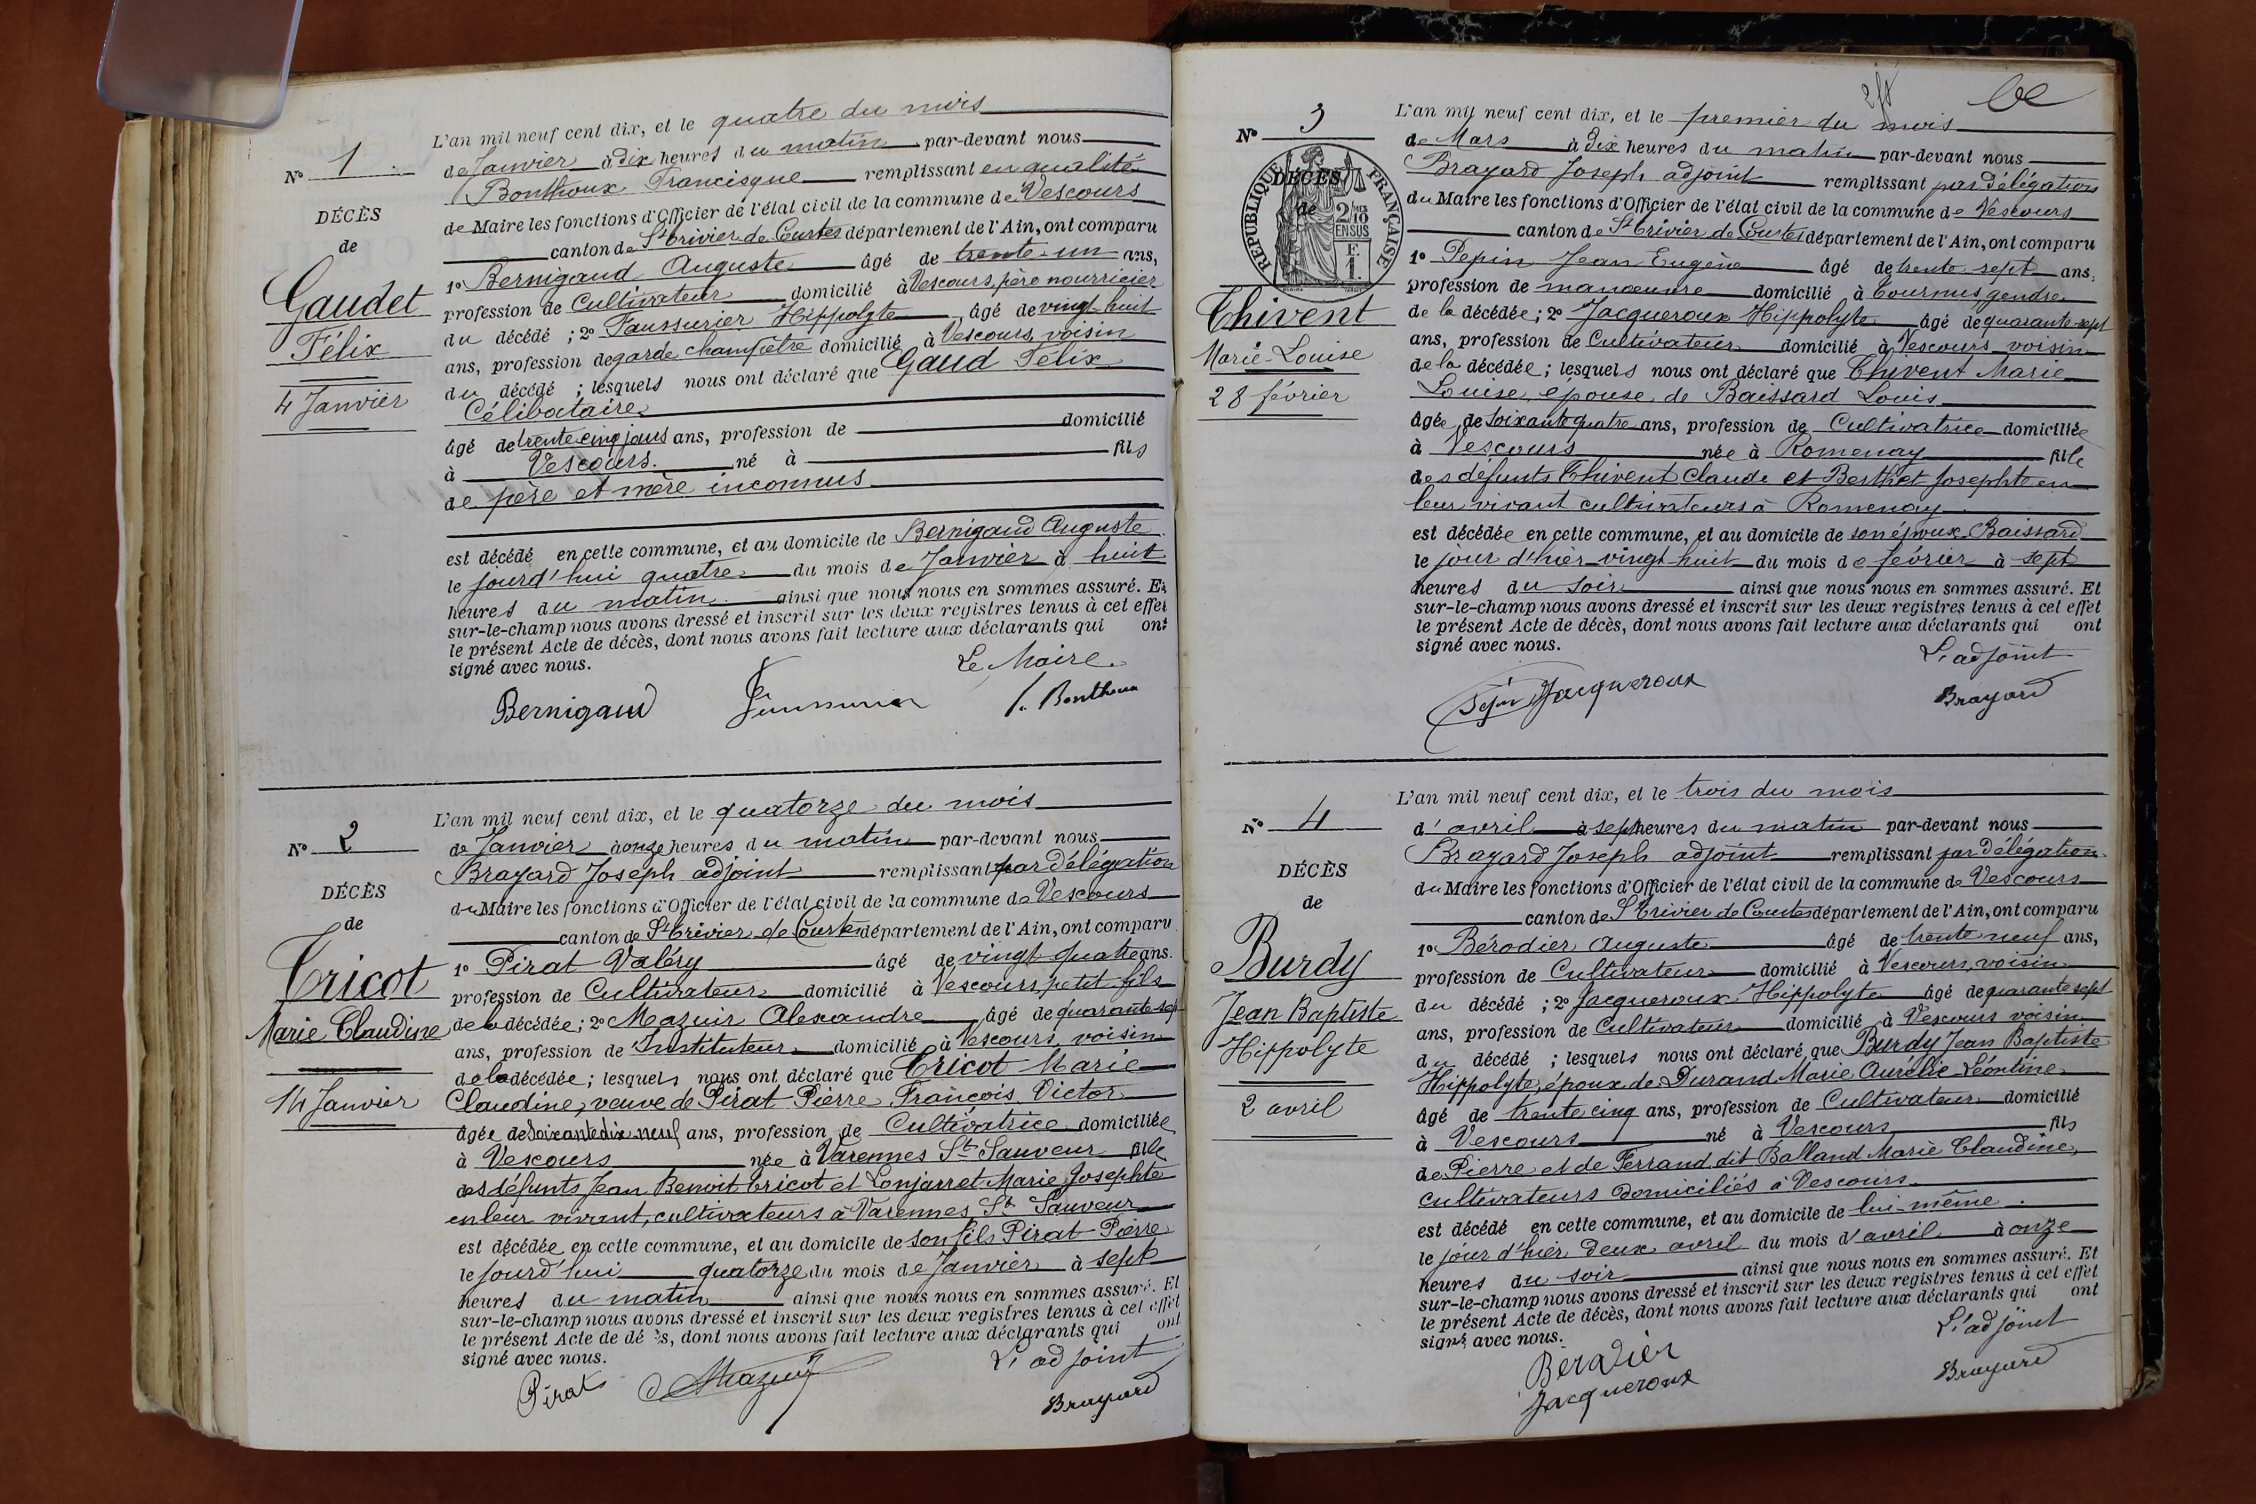 L'an mil neuf cent dix, et le quatre du mois
N° 1
de Janvier à dix heures du matin par-devant nous
Bonthoux Francisque remplissant en qualité
DÉCÈS
de Maire les fonctions d'Officier de l'état civil de la commune de Vescours
de
canton de St Trivier de Courtes département de l'Ain, ont comparu
1° Bernigaud Auguste âgé de trente-un ans,
Gaudet
profession de Cultivateur domicilié à Vescours, père nourricier
du décédé ; 2° Faussurier Hippolyte âgé de vingt-huit
Félix
ans, profession de garde champêtre domicilié à Vescours, voisin
du décédé ; lesquels nous ont déclaré que Gaud Félix
4 Janvier
Célibataire
âgé de trente cinq jours ans, profession de domicilié
à Vescours né à fils
de père et mère inconnus
est décédé en cette commune, et au domicile de Bernigaud Auguste
le jourd'hui quatre du mois de Janvier à huit
heures du matin ainsi que nous nous en sommes assuré. Et
sur-le-champ nous avons dressé et inscrit sur les deux registres tenus à cet effet
le présent Acte de décès, dont nous avons fait lecture aux déclarants qui ont
signé avec nous.
Le Maire
Bernigaud
F. Bonthoux
L'an mil neuf cent dix, et le quatorze du mois
N° 2
de Janvier à onze heures du matin par-devant nous
Brayard Joseph adjoint remplissant par délégation
DÉCÈS
du Maire les fonctions d'Officier de l'état civil de la commune de Vescours
de
canton de St Trivier de Courtes département de l'Ain, ont comparu
1° Pirat Valéry âgé de vingt-quatre ans.
Tricot
profession de Cultivateur domicilié à Vescours, petit-fils
Marie Claudine
de la décédée ; 2° Mazuir Alexandre âgé de quarante-sept
ans, profession de Instituteur domicilié à Vescours, voisin
de la décédée ; lesquels nous ont déclaré que Tricot Marie
14 Janvier
Claudine, veuve de Pirat Pierre François Victor
âgée de soixante dix neuf ans, profession de Cultivatrice domiciliée
à Vescours née à Varennes St Sauveur fille
des défunts Jean Benoit Tricot et Lonjarret Marie Josephte
en leur vivant, cultivateurs à Varennes St Sauveur
est décédée en cette commune, et au domicile de son fils Pirat Pierre
le jourd'hui quatorze du mois de Janvier à sept
heures du matin ainsi que nous nous en sommes assuré. Et
sur-le-champ nous avons dressé et inscrit sur les deux registres tenus à cet effet
le présent Acte de décès, dont nous avons fait lecture aux déclarants qui ont
signé avec nous.
L'adjoint
Pirat Mazuir
Brayard
L'an mil neuf cent dix, et le premier du mois
N° 3
de Mars à dix heures du matin par-devant nous
Brayard Joseph adjoint remplissant par délégation
RÉPUBLIQUE FRANÇAISE
DÉCÈS
de
2/10 EN SUS
F. 1.
du Maire les fonctions d'Officier de l'état civil de la commune de Vescours
canton de St Trivier de Courtes département de l'Ain, ont comparu
1° Pepin Jean Eugène âgé de trente-sept ans,
profession de manœuvre domicilié à Tournus gendre
Thivent
de la décédée ; 2° Jacqueroux Hippolyte âgé de quarante-sept
ans, profession de Cultivateur domicilié à Vescours voisin
Marie-Louise
de la décédée ; lesquels nous ont déclaré que Thivent Marie
28 février
Louise, épouse de Baissard Louis
âgée de soixante quatre ans, profession de Cultivatrice domiciliée
à Vescours née à Romenay fille
des défunts Thivent Claude et Berthet Josephte en
leur vivant cultivateurs à Romenay
est décédée en cette commune, et au domicile de son époux Baissard
le jour d'hier vingt huit du mois de février à sept
heures du soir ainsi que nous nous en sommes assuré. Et
sur-le-champ nous avons dressé et inscrit sur les deux registres tenus à cet effet
le présent Acte de décès, dont nous avons fait lecture aux déclarants qui ont
signé avec nous.
L'adjoint
Pepin Jacqueroux
Brayard
L'an mil neuf cent dix, et le trois du mois
N° 4
d'avril à sept heures du matin par-devant nous
Brayard Joseph adjoint remplissant par délégation
DÉCÈS
du Maire les fonctions d'Officier de l'état civil de la commune de Vescours
de
canton de St Trivier de Courtes département de l'Ain, ont comparu
1° Bérodier Auguste âgé de trente neuf ans,
Burdy
profession de Cultivateur domicilié à Vescours, voisin
du décédé ; 2° Jacqueroux Hippolyte âgé de quarante sept
Jean Baptiste
ans, profession de Cultivateur domicilié à Vescours voisin
Hippolyte
du décédé ; lesquels nous ont déclaré que Burdy Jean Baptiste
Hippolyte, époux de Durand Marie Aurélie Léontine
2 avril
âgé de trente cinq ans, profession de Cultivateur domicilié
à Vescours né à Vescours fils
de Pierre et de Ferrand dit Balland Marie Claudine,
cultivateurs domiciliés à Vescours
est décédé en cette commune, et au domicile de lui-même
le jour d'hier deux avril du mois d'avril à onze
heures du soir ainsi que nous nous en sommes assuré. Et
sur-le-champ nous avons dressé et inscrit sur les deux registres tenus à cet effet
le présent Acte de décès, dont nous avons fait lecture aux déclarants qui ont
signé avec nous.
L'adjoint
Bérodier
Jacqueroux
Brayard